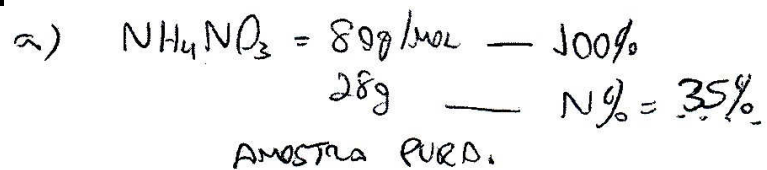 a) NH₄NO₃ = 80g/mol — 100%
28g — N% = 35%
AMOSTRA PURA.